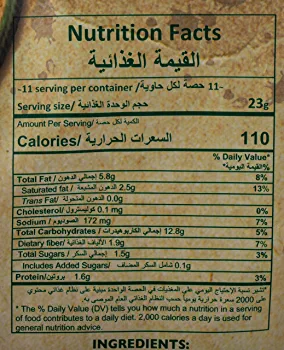 Nutrition Facts
القيمة الغذائية
-11 serving per container/ حصة لكل حاوية 11-
Serving size/ حجم الوحدة الغذائية 23g
Amount Per Serving/ الكمية لكل حصة
Calories/ السعرات الحرارية 110
% Daily Value*
%القيمة اليومية*
Total Fat/ إجمالي الدهون 5.8g 8%
Saturated fat/ الدهون المشبعة 2.5g 13%
Trans Fat/ الدهون المتحولة 0.0g
Cholesterol/ كوليسترول 0.1 mg 0%
Sodium/ الصوديوم 172 mg 7%
Total Carbohydrates/ إجمالي الكاربوهيدرات 12.8g 5%
Dietary fiber/ الألياف الغذائية 1.9g 7%
Total Sugars/ إجمالي السكر 1.5g 3%
Includes Added Sugars/ تشمل السكر المضاف 0.1g
Protein/ بروتين 1.6g 3%
*تشير نسبة الإحتياج اليومي على المغذيات في الحصة الواحدة مبنية على نظام غذائي محتوي
على 2000 سعرة حرارية يومياً حسب النظام الغذائي العام الموصى به.
* The % Daily Value (DV) tells you how much a nutrition in a serving
of food contributes to a daily diet. 2,000 calories a day is used for
general nutrition advice.
INGREDIENTS: